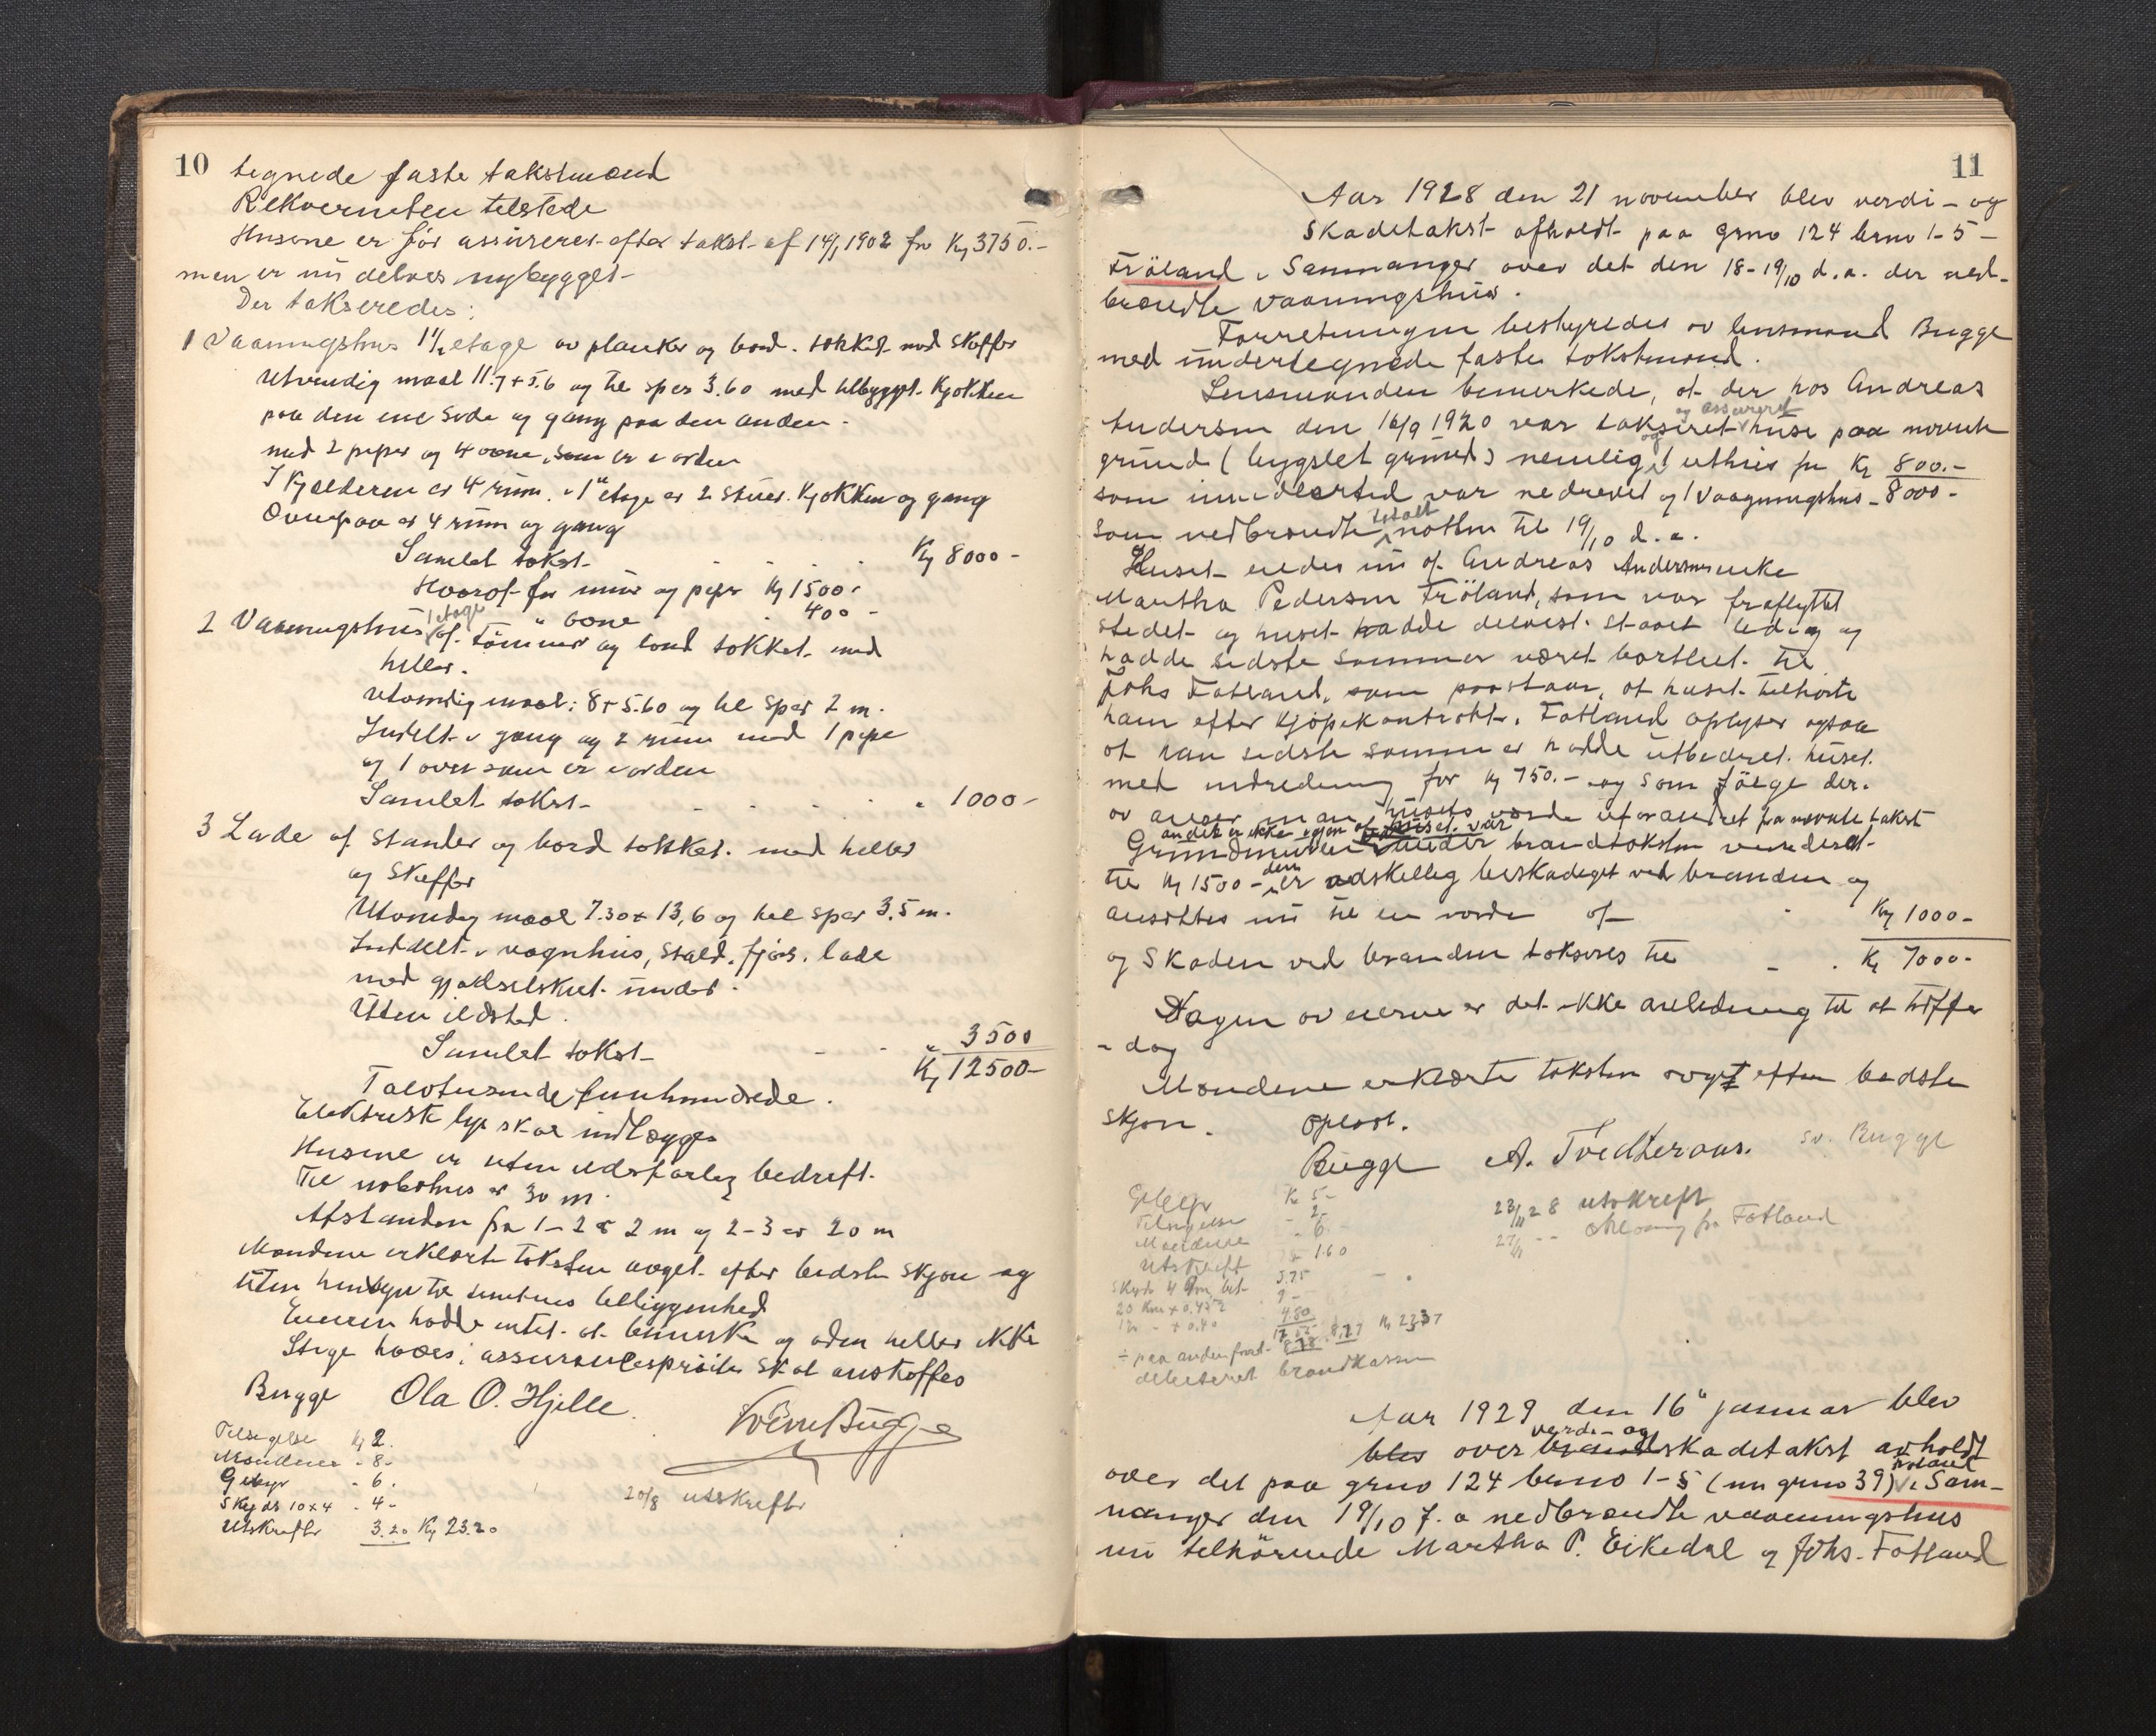 10
tegnede faste takstmænd
Rekvirenten tilstede
Husene er før assureret efter takst af 14/1 1902 for Kr 3750.-
men er nu delvis nybygget-
Der takseredes:
1 Vaaningshus 1 1/2 etage av planker og bord. tækket med skeffer
Utvendig maal 11.7 + 5.6 og til sper 3.60 med tilbygget Kjøkken
paa den ene side og gang paa den anden.
med 2 piper og 4 ovne, som er i orden
I Kjælderen er 4 rum. i 1" etage er 2 stuer. Kjøkken og gang
Ovenpaa er 4 rum og gang
Samlet takst Kr 8000 -
Hvoraf for mur og piper Kr 1500 -
" ovne 400 -
2 Vaaningshus 1 etage af tømmer og bord tækket med
heller.
Utvendig maal: 8 + 5.60 og til sper 2 m.
Inddelt i gang og 2 rum med 1 pipe
og 1 ovn som er i orden
Samlet takst - " 1000 -
3 Lade af stander og bord tækket med heller
og skeffer
Utvendig maal 7.30 + 13,6 og til sper 3,5 m.
Inddelt i vognhus, stald, fjøs, lade
med gjødselskut under.
Uten ildsted.
Samlet takst - " 3500
Kr 12500-
Tolvtusindefemhundrede.
Elektrisk lys skal indlægges
Husene er uten ildsfarlig bedrift.
Til nabohus er 30 m.
Afstanden fra 1 - 2 er 2 m og 2 - 3 er 20 m
Mændene erklærte taksten avget efter bedste skjøn og
uten hensyn til tomtens beliggenhed
Eieren hadde intet at bemerke og aden heller ikke
Stige haves; assuransesprøite skal anskaffes
Bugge Ola O. Hjelle. Sverre Bugge
Tilsigelse Kr 2.
Mændene - 8-
Gebyr - 6.
Skyds 10 x 4 - 4-
Utskrefter 3.20 Kr 23.20
20/8 utskrefter
11
Aar 1928 den 21 november blev verdi- og
skadetakst afholdt paa grno 124 brno 1-5-
Frøland i Samnanger over det den 18-19/10 d.a. der ned-
brændte vaaningshus.
Forretningen bestyredes av lensmand Bugge
med undertegnede faste takstmænd.
Lensmanden bemerkede, at der hos Andreas
Andersen den 16/9 1920 var taksert og assurert huse paa nævnte
grund (bygslet grund) nemlig og 1 uthus for Kr 800.-
som imidlertid var nedrevet og 1 Vaaningshus - 8000 -
som nedbrændte totalt natten til 19/10 d.a.
Huset eiedes nu af Andreas Andersens enke
Martha Pedersen Frøland, som var fraflyttet
stedet og huset hadde delvist staaet ledig og
hadde sidste sommer været bortleiet til
Johs Fotland, som paastaar, at huset tilhørte
ham efter Kjøpekontrakt. Fotland oplyser ogsaa
at han sidste sommer hadde utbedret huset
med indredning for Kr 750.- og som følge der-
av anser man husets værdi uforandret fra nævnte takst
andet er ikke igjen af huset.
Grundmuren under brandtaksten vurderet
til Kr 1500 - den er adskillig beskadiget ved branden og
ansættes nu til en værdi af Kr 1000-
og Skaden ved branden takseres til Kr 7000-
Nogen av eierne er det ikke anledning til at træffe
i dag
Mændene erklærte taksten avget efter bedste
skjøn. Oplæst.
Bugge A. Tvedteraas. Sv. Bugge
Gebyr Kr 5-
Tilsigelse - 2-
Mændene - 6.-
Utskreft - 1.60
Skyds 4 Km bet 3.75
20 Km + 0.45 9-
12 - + 0.40 4.80
17.55
÷ paa anden forret- 8.78 8.77 Kr 23.37
debiteret brandkassen
23/11 28 utskreft
27/11 - - fra Fotland
Aar 1929 den 16" januar blev
blev over verdi- og brandskadetakst avholdt
over det paa grno 124 brno 1-5 (nu grno 39) Frøland i Sam-
nanger den 19/10 f.a nedbrændte vaaningshus
nu tilhørende Martha P. Eikedal og Johs. Fotland